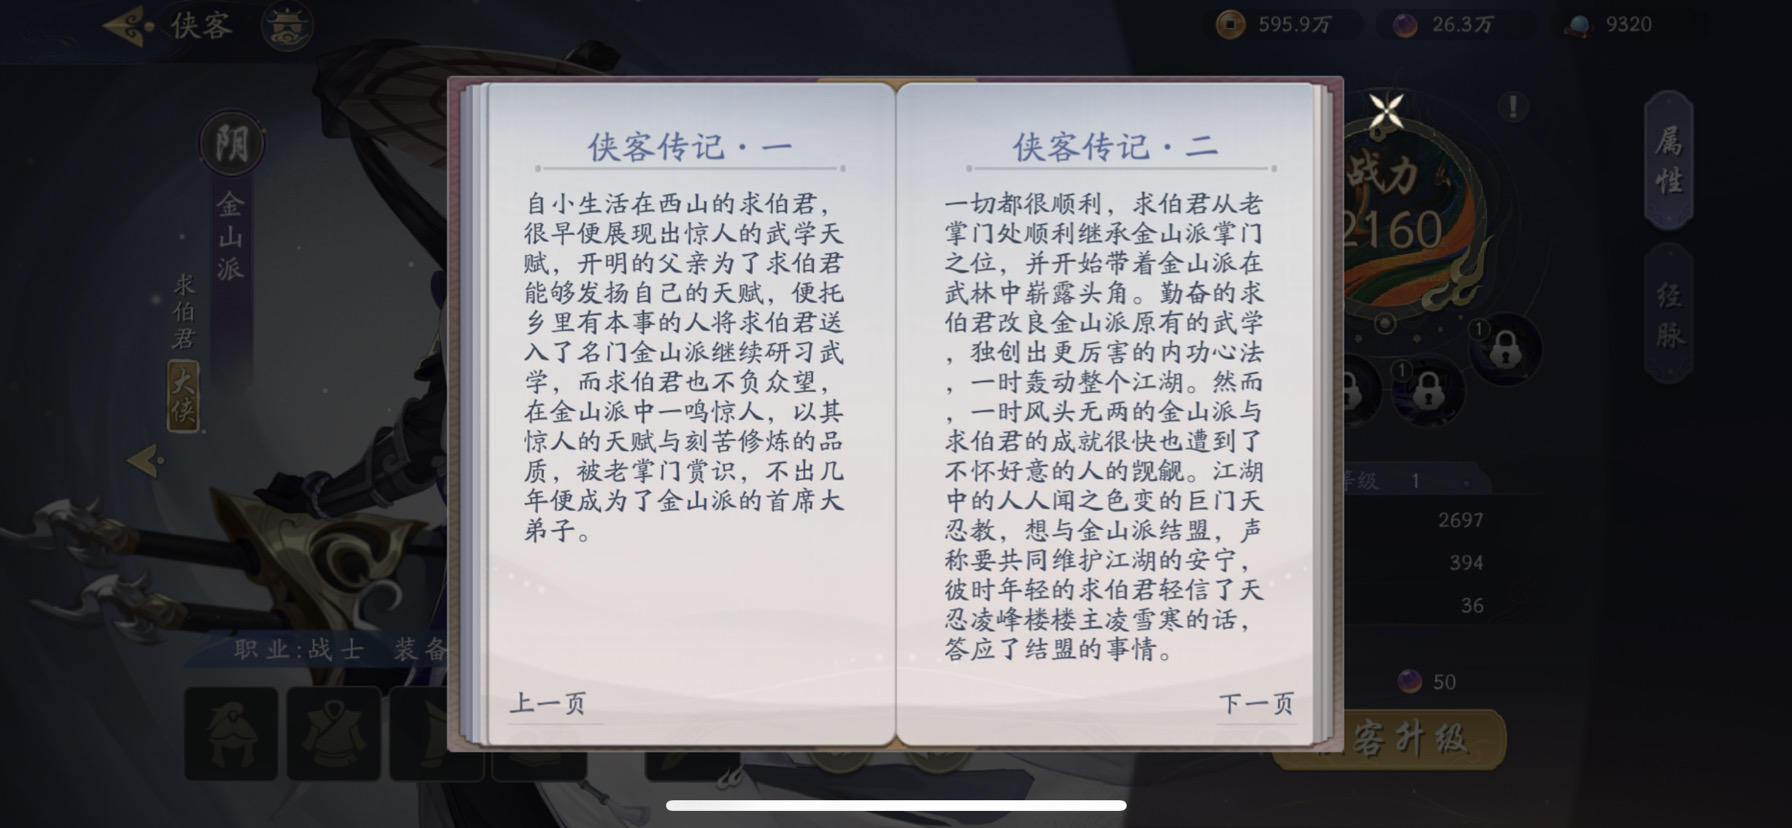 侠客
595.9万
26.3万
9320
阴
金山派
求伯君
大侠
侠客传记·一
自小生活在西山的求伯君，
很早便展现出惊人的武学天
赋，开明的父亲为了求伯君
能够发扬自己的天赋，便托
乡里有本事的人将求伯君送
入了名门金山派继续研习武
学，而求伯君也不负众望，
在金山派中一鸣惊人，以其
惊人的天赋与刻苦修炼的品
质，被老掌门赏识，不出几
年便成为了金山派的首席大
弟子。
上一页
侠客传记·二
一切都很顺利，求伯君从老
掌门处顺利继承金山派掌门
之位，并开始带着金山派在
武林中崭露头角。勤奋的求
伯君改良金山派原有的武学
，独创出更厉害的内功心法
，一时轰动整个江湖。然而
，一时风头无两的金山派与
求伯君的成就很快也遭到了
不怀好意的人的觊觎。江湖
中的人人闻之色变的巨门天
忍教，想与金山派结盟，声
称要共同维护江湖的安宁，
彼时年轻的求伯君轻信了天
忍凌峰楼楼主凌雪寒的话，
答应了结盟的事情。
下一页
战力
2160
属性
经脉
1
1
等级 1
2697
394
36
50
客升级
职业:战士 装备